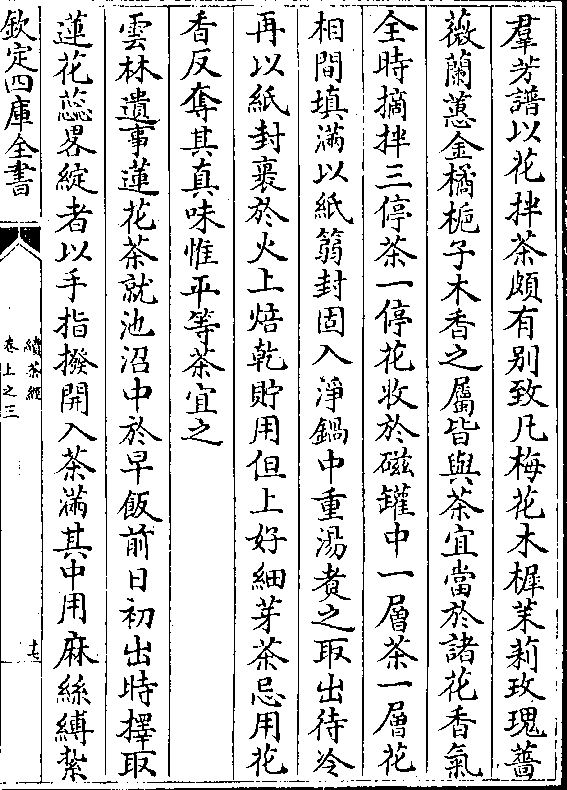 羣芳譜以花拌茶頗有别致凡梅花木樨茉莉玫瑰薔
薇蘭蕙金橘梔子木香之屬皆與茶宜當於諸花香氣
全時摘拌三停茶一停花收於磁罐中一層茶一層花
相間填滿以紙篛封固入淨鍋中重湯煑之取出待冷
再以紙封裹於火上焙乾貯用但上好細芽茶忌用花
香反奪其真味惟平等茶宜之
雲林遺事蓮花茶就池沼中於早飯前日初出時擇取
蓮花蕊畧綻者以手指撥開入茶滿其中用麻絲縛紮
欽定四庫全書
續茶經
卷上之三